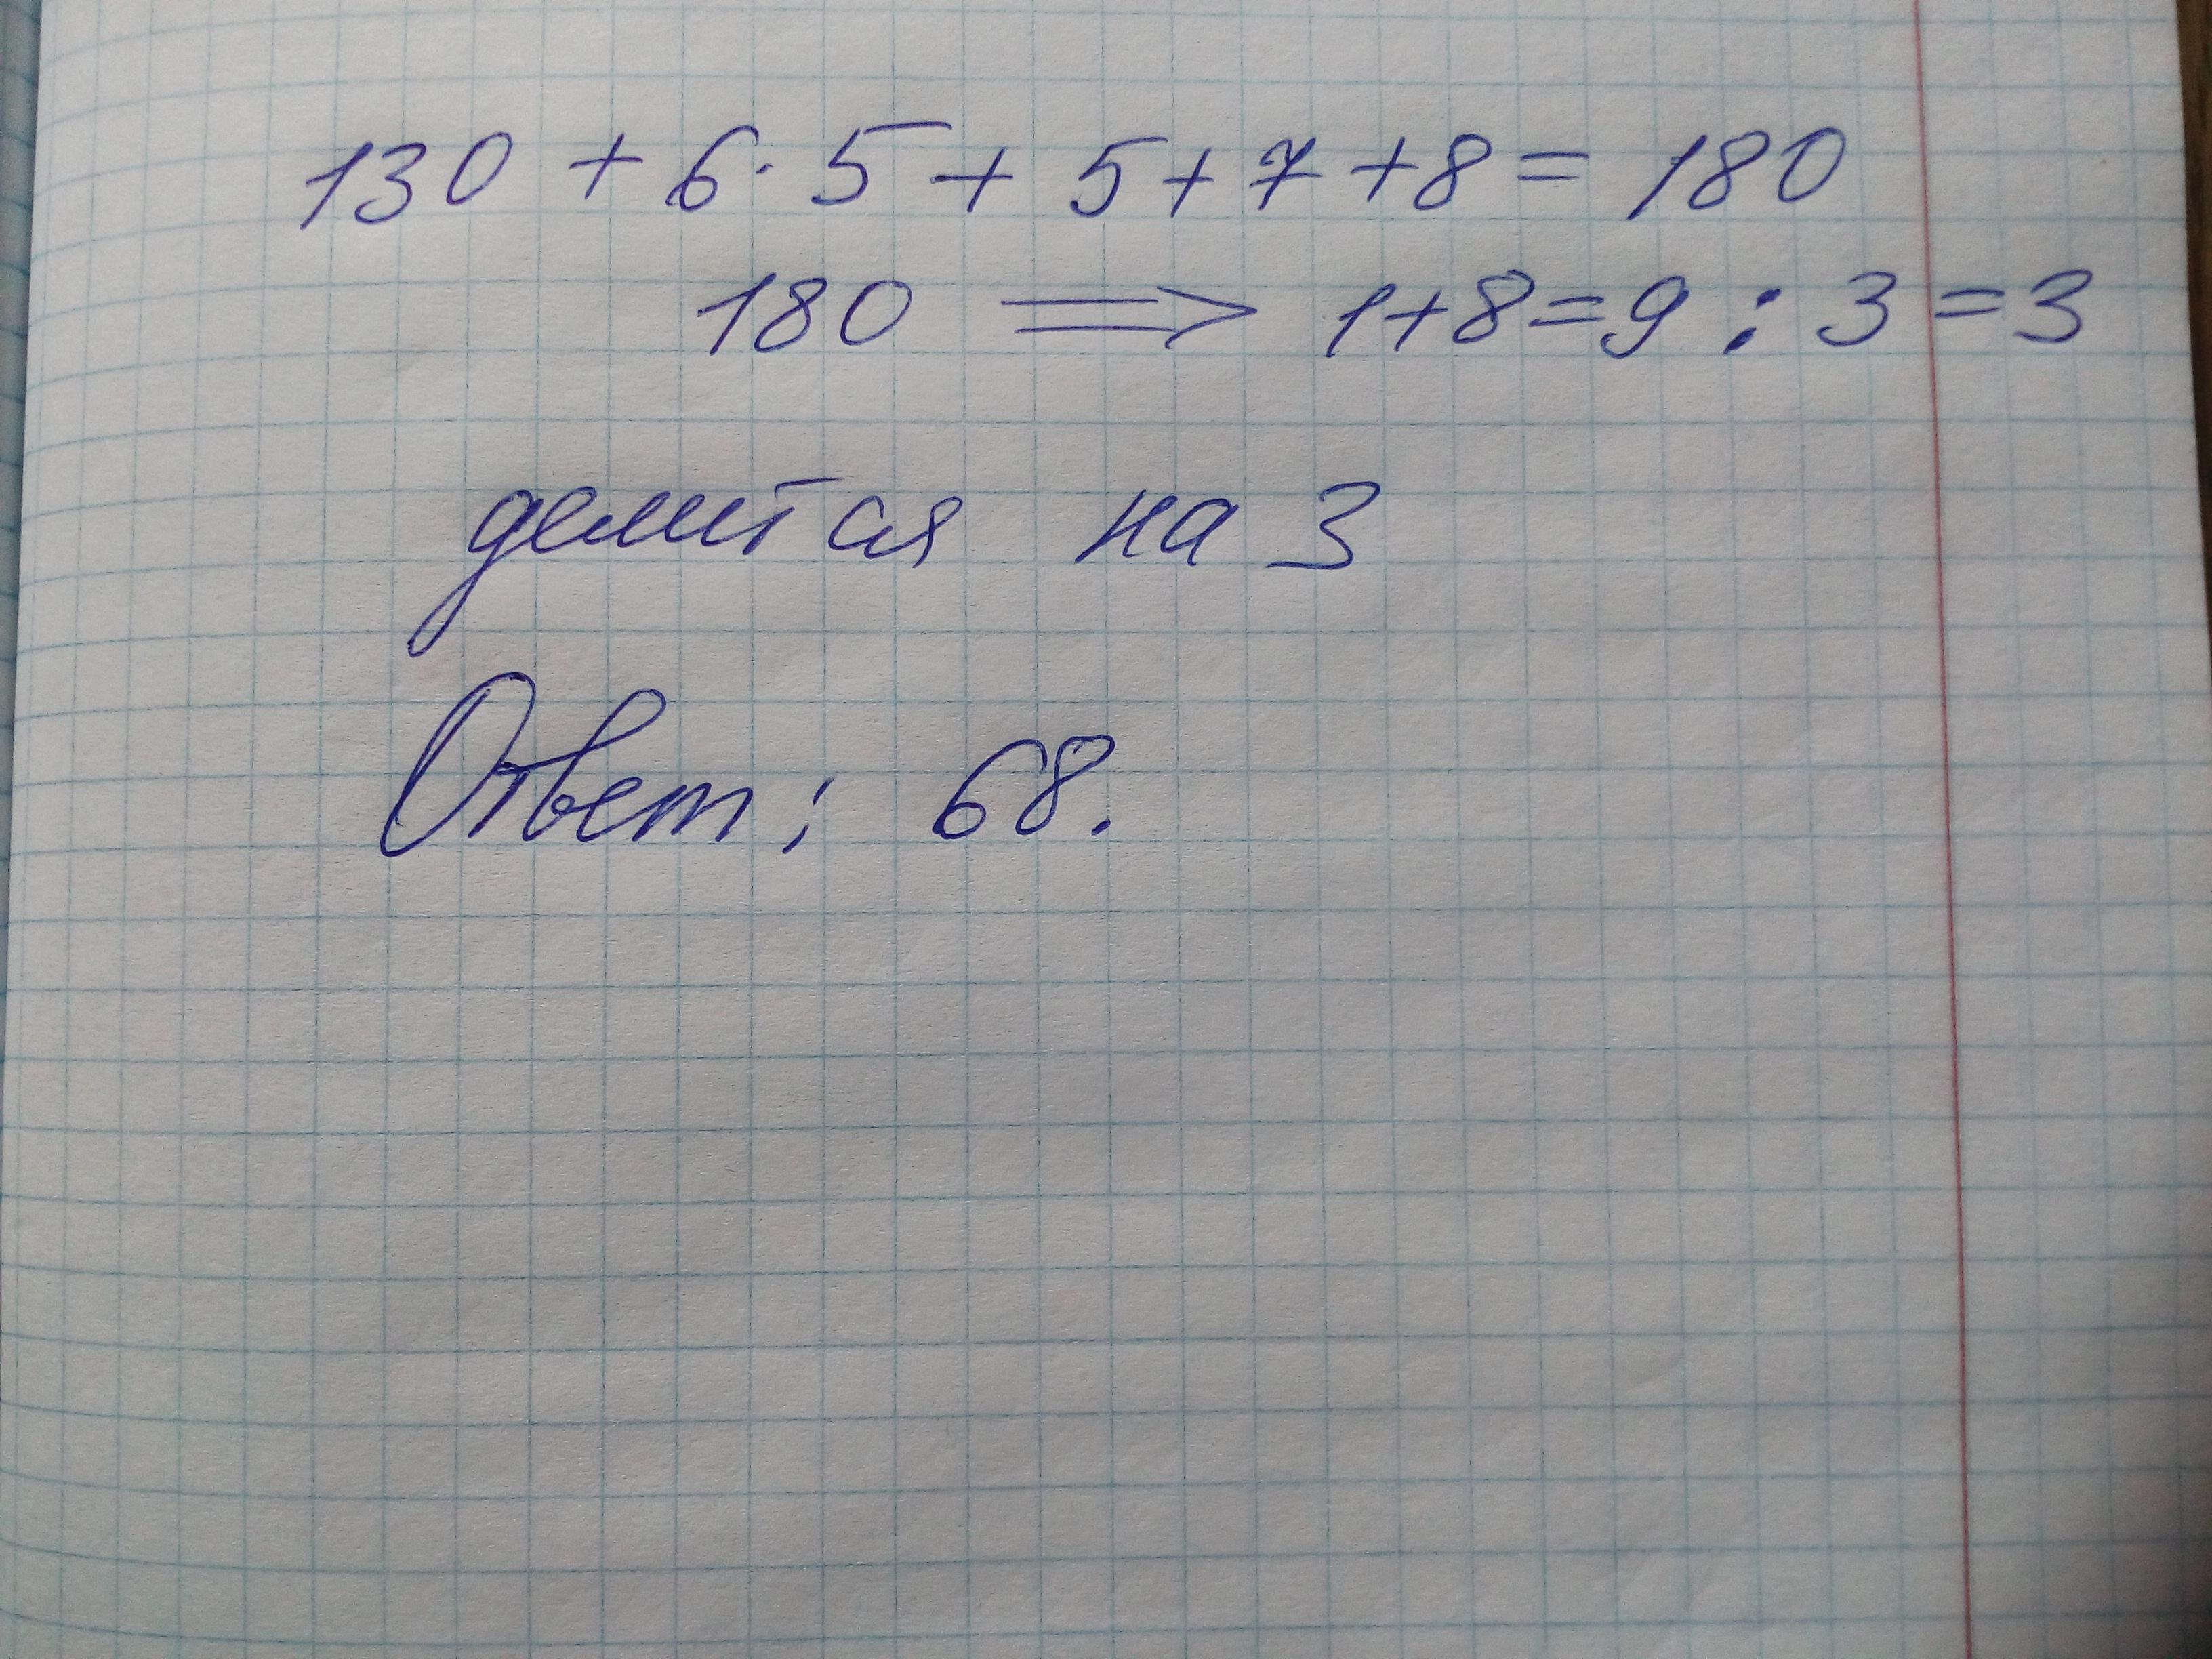 130 + 6 · 5 + 5 + 7 + 8 = 180
180 ⟹ 1+8=9 : 3 = 3
делится на 3
Ответ: 68.